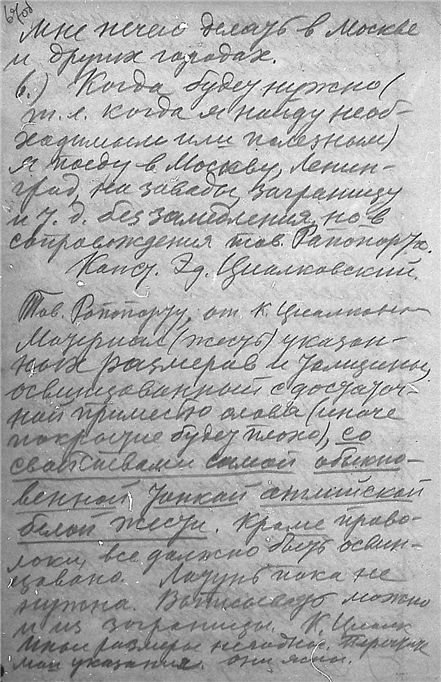 Мне нечего делать в Москве
и других городах.
в.) Когда будет нужно (
т.е. когда я найду необ-
ходимым или полезным)
я поеду в Москву, Ленин-
град, на заводы, заграницу
и т.д. без замедления, но в
сопровождения тов. Рапопорта.
Конст. Эд. Циолковский.
Тов. Рапопорту, от К. Циолковс
Материал (жесть) указан-
ных размеров и толщины,
освинцованный с достаточ-
ной примесью олова (иначе
покрытие будет плохо), со
свойствами самой обыкно-
венной тонкой английской
белой жести. Кроме прово-
локи, все должно быть освин-
цовано. Латунь пока не
нужна. Выписывать можно
и из заграницы. К. Циолк
Иные размеры негодны.
мои указания. Они ясны.